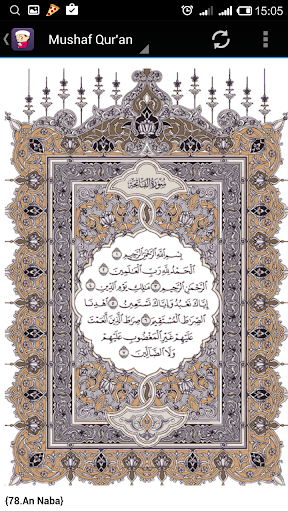 15:05
Mushaf Qur'an
سورة الفاتحة
بسم الله الرحمن الرحيم ١
الحمد لله رب العلمين ٢
الرحمن الرحيم ٣ ملك يوم الدين ٤
إياك نعبد وإياك نستعين ٥ اهدنا
الصرط المستقيم ٦ صرط الذين أنعمت
عليهم غير المغضوب عليهم
ولا الضالين ٧
{78.An Naba}